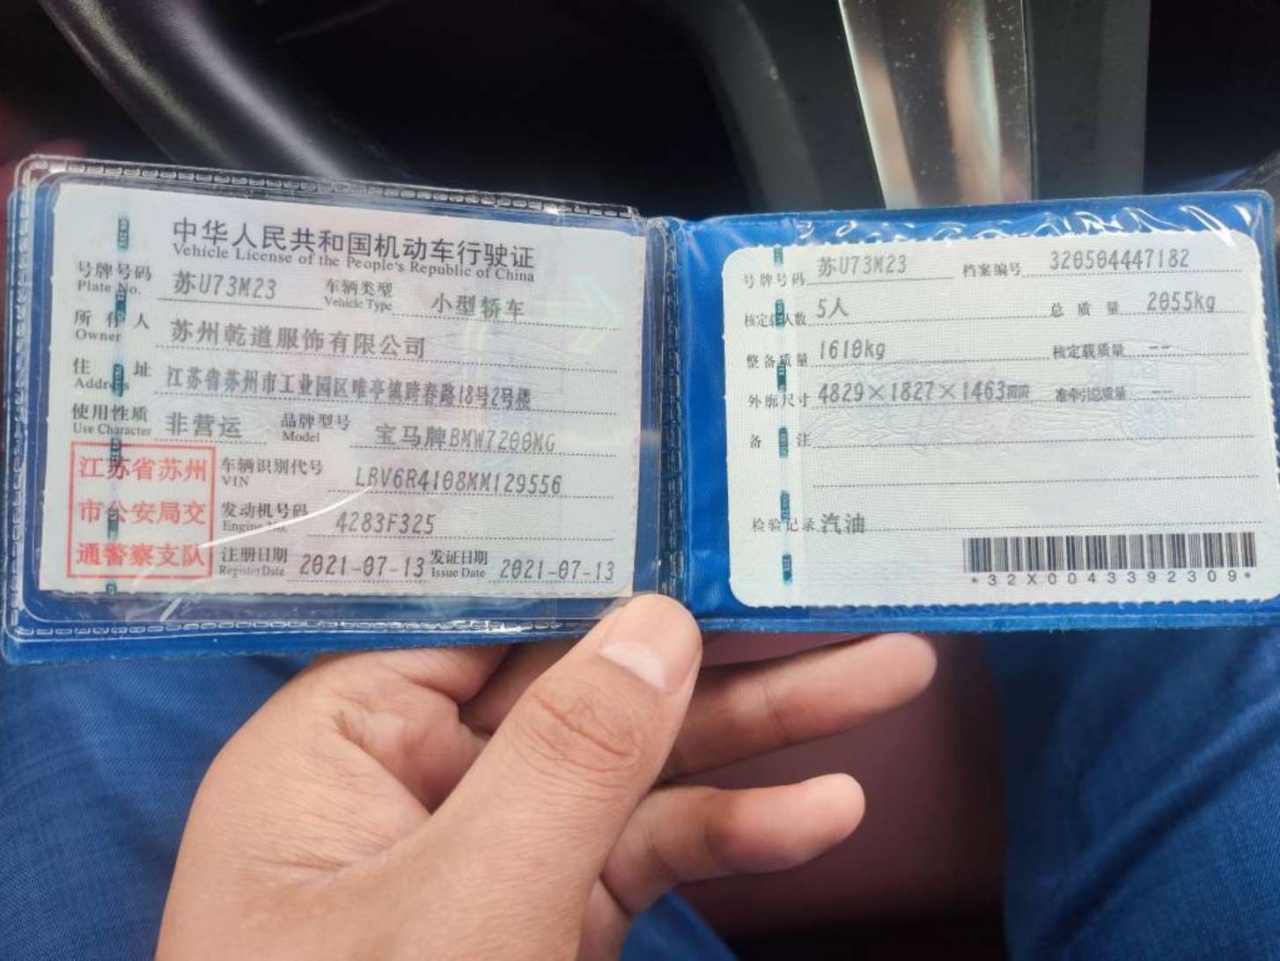 中华人民共和国机动车行驶证
Vehicle License of the People's Republic of China
号牌号码 苏U73M23 车辆类型 小型轿车
Plate No. Vehicle Type
所有人 苏州乾道服饰有限公司
Owner
住址 江苏省苏州市工业园区唯亭镇跨春路18号2号楼
Address
使用性质 非营运 品牌型号 宝马牌BMW7200MG
Use Character Model
车辆识别代号 LBV6R4108MM129556
VIN
发动机号码 4283F325
Engine No.
注册日期 2021-07-13 发证日期 2021-07-13
Register Date Issue Date
江苏省苏州
市公安局交
通警察支队
号牌号码 苏U73M23 档案编号 320504447182
核定载人数 5人 总质量 2055kg
整备质量 1610kg 核定载质量 --
外廓尺寸 4829×1827×1463mm 准牵引总质量 --
备注
检验记录 汽油
*32X0043392309*